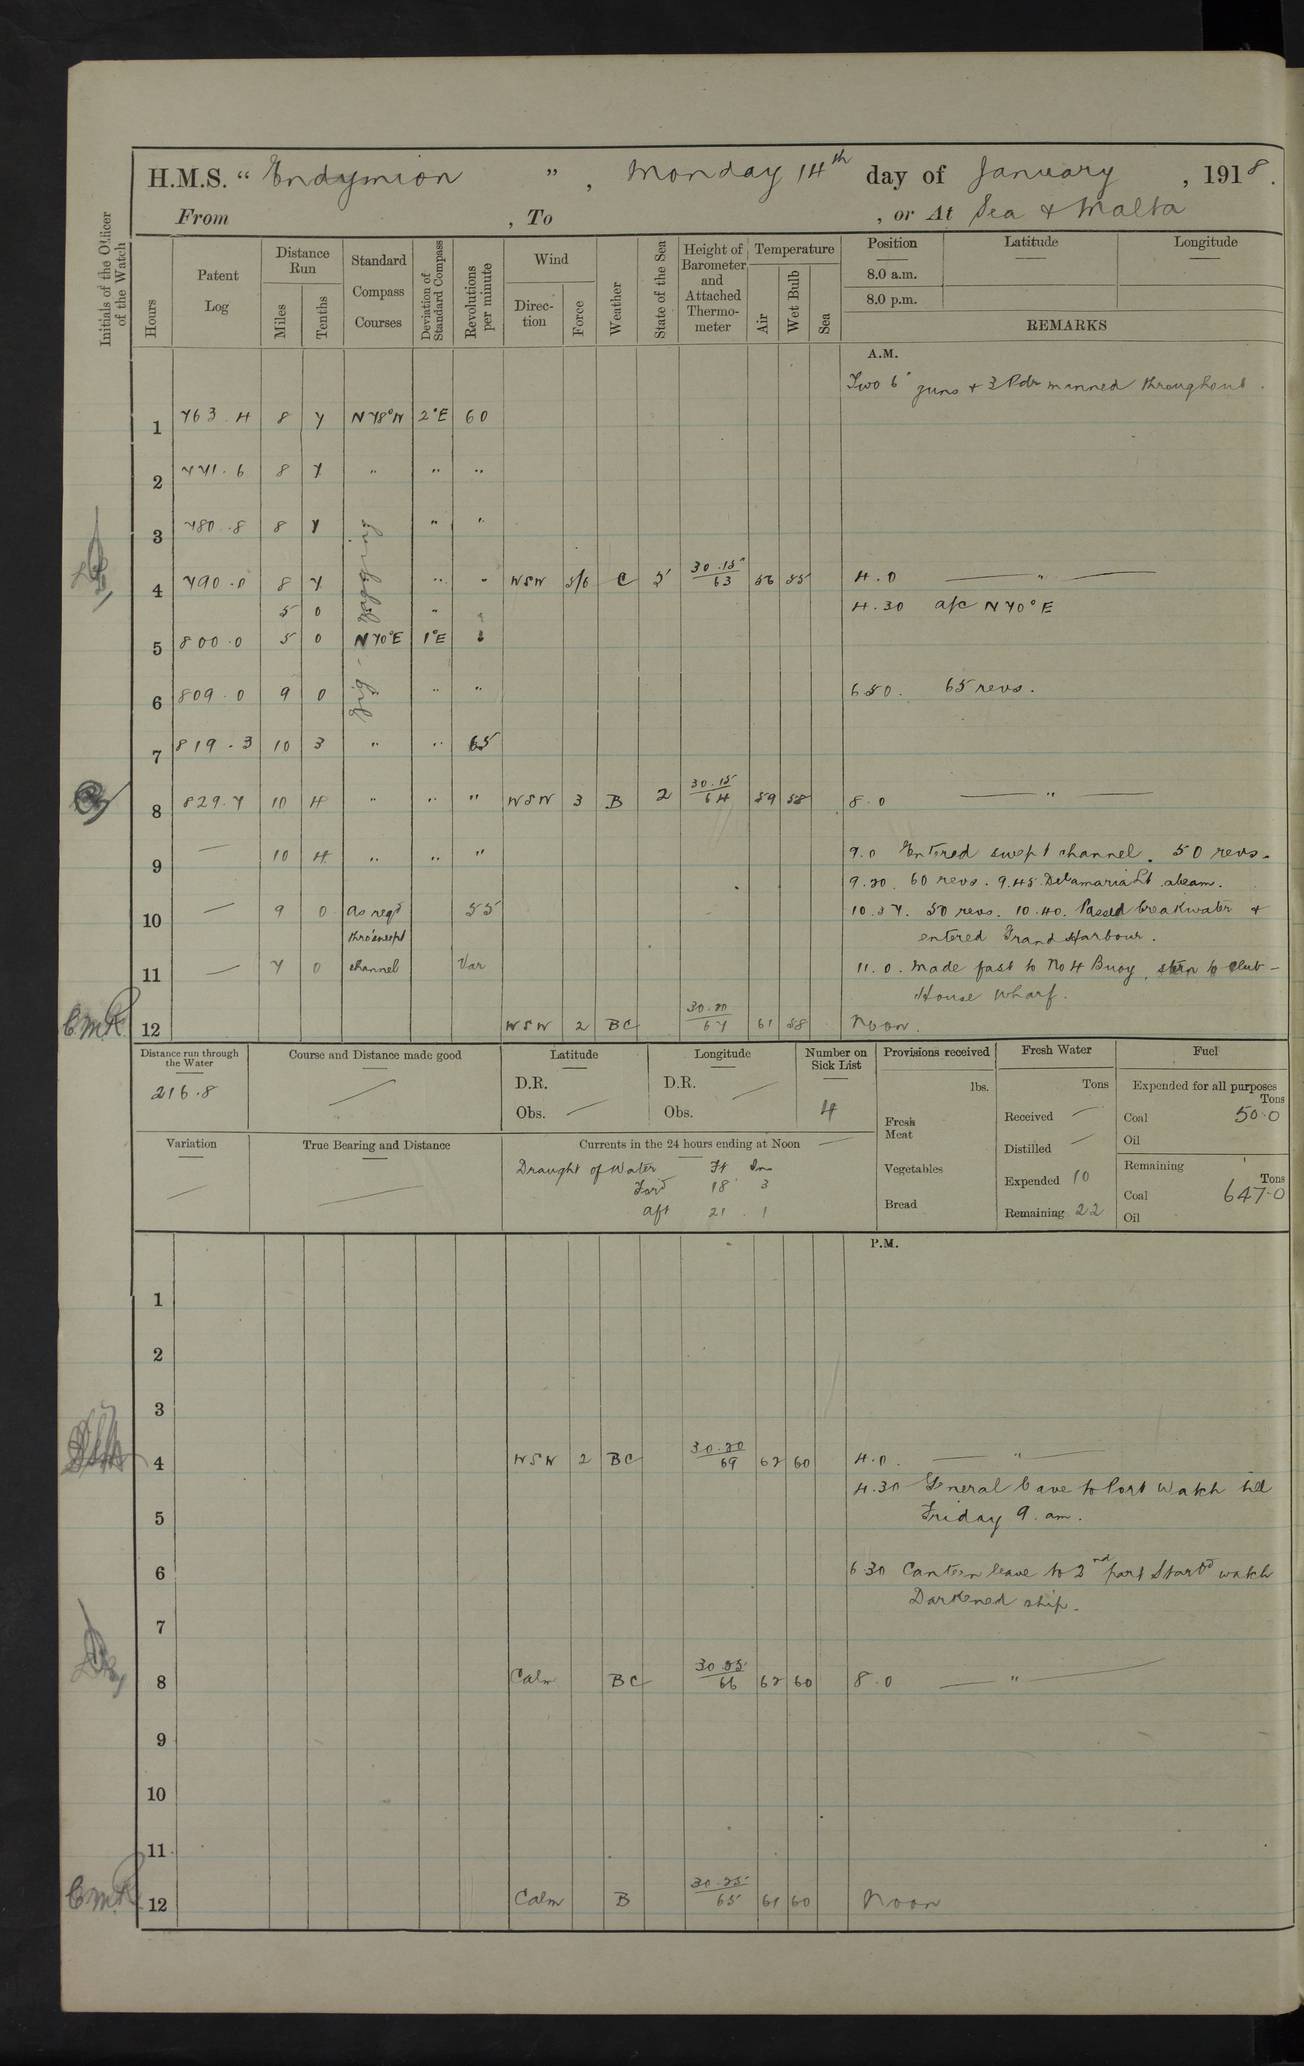 H.M.S. " Endymion ", Monday 14th day of January, 1918.
From , To , or At Sea & Malta
Initials of the Officer of the Watch
Hours
Patent Log
Distance Run
Miles
Tenths
Standard Compass Courses
Deviation of Standard Compass
Revolutions per minute
Wind
Direction
Force
Weather
State of the Sea
Height of Barometer and Attached Thermometer
Temperature
Air
Wet Bulb
Sea
Position Latitude Longitude
8.0 a.m.
8.0 p.m.
REMARKS
A.M.
Two 6" guns & 3 Pdr manned throughout.
1 763.4 8 7 N78°W 2°E 60
2 771.6 8 7 " " "
3 780.8 8 7 " "
zig-zagging
4 790.0 8 7 " " WSW 5/6 C 5 30.15/63 56 55 4.0 "
5 0 " " 4.30 a/c N70°E
5 800.0 5 0 N70°E 1°E "
6 809.0 9 0 " " 6 50. 65 revs.
7 819.3 10 3 " " 65
8 829.7 10 4 " " " WSW 3 B 2 30.15/64 59 58 8.0 "
9 — 10 4 " " " 9.0 Entered swept channel. 50 revs.
9.20. 60 revs. 9.45 Delamaria Lt abeam.
10 — 9 0 As reqd 55 10.37. 50 revs. 10.40. Passed breakwater &
thro' swept entered Grand Harbour.
11 — 7 0 channel Var 11.0. Made fast to No 4 Buoy, stern to Club-
House wharf.
CMR 12 WSW 2 BC 30.20/67 61 58 Noon.
Distance run through the Water
216.8
Course and Distance made good
Latitude
D.R.
Obs. —
Longitude
D.R. —
Obs.
Number on Sick List
4
Provisions received
lbs.
Fresh Meat
Vegetables
Bread
Fresh Water
Tons
Received —
Distilled —
Expended 10
Remaining 22
Fuel
Expended for all purposes
Tons
Coal 50.0
Oil
Remaining
Tons
Coal 647.0
Oil
Variation
True Bearing and Distance
Currents in the 24 hours ending at Noon —
Draught of Water Ft Ins
Ford 18 3
Aft 21 . 1
P.M.
1
2
3
4 WSW 2 BC 30.20/69 62 60 4.0. "
4.30 General leave to Port Watch till
5 Friday 9. am.
6 6 30 Canteen leave to 2nd part Starbd watch
Darkened ship.
7
8 Calm BC 30.25/66 62 60 8.0 "
9
10
11
CMR 12 Calm B 30.25/65 61 60 Noon